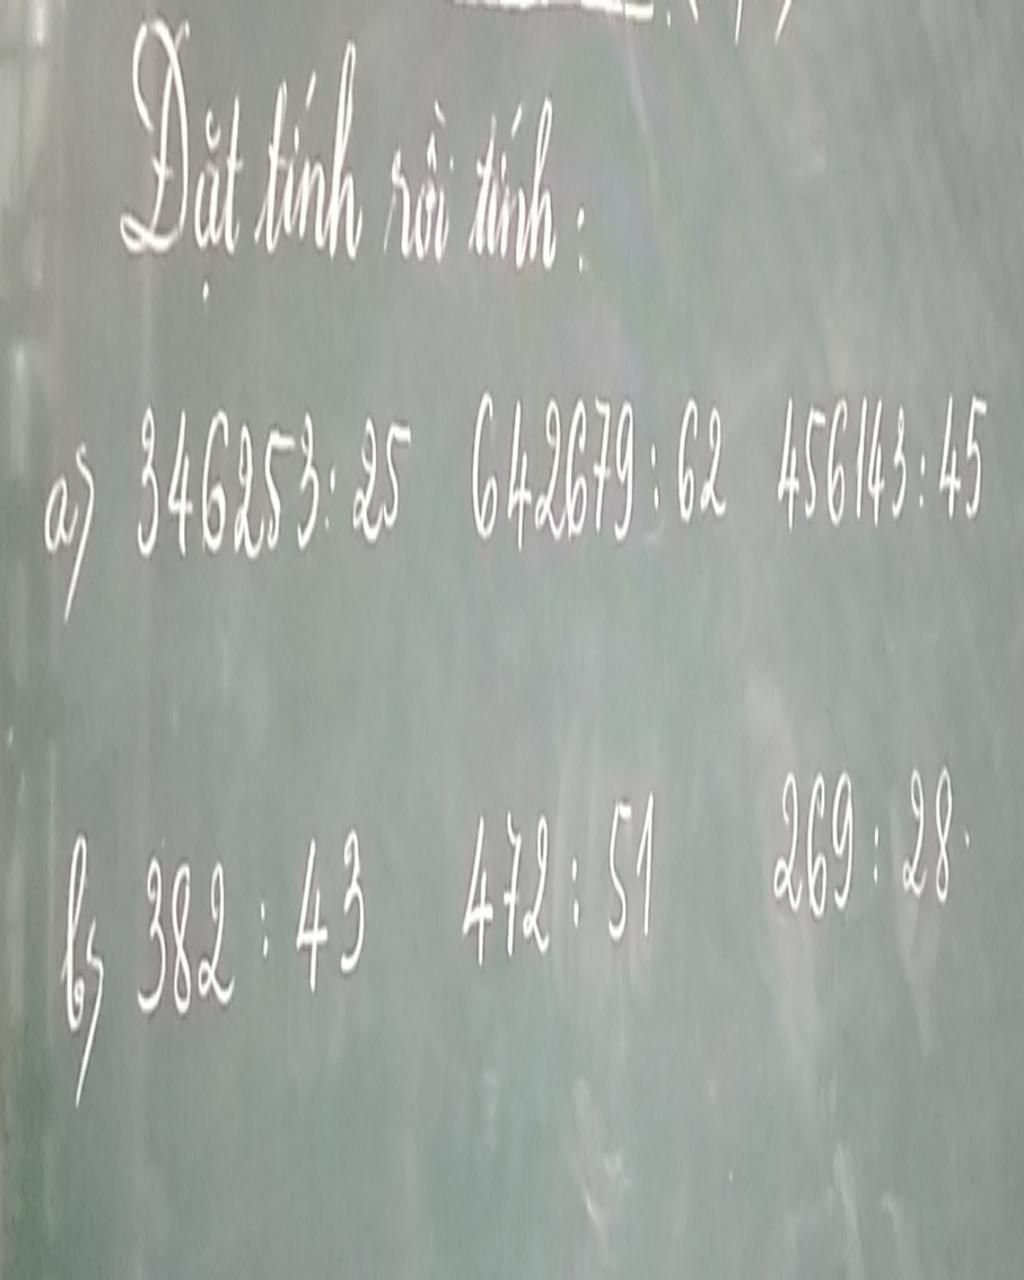 Đặt tính rồi tính:
a) 346253: 25 642679: 62 456143: 45
b) 382 : 43 472: 51 269 : 28.